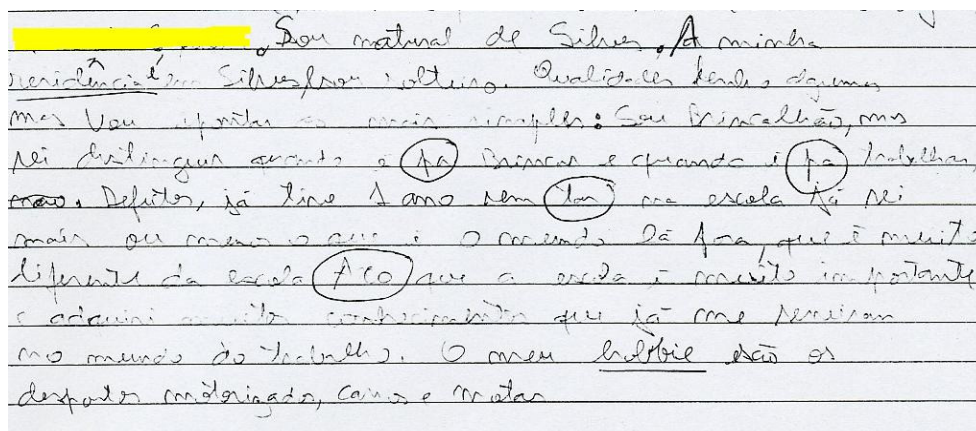 . Sou natural de Silves. A minha
residência é em Silves sou solteiro. Qualidades tenho algumas
mas Vou apontar as mais simples: Sou Brincalhão, mas
sei distinguir quando é pa Brincar e quando é pa trabalhar
Defeitos, já tive 1 ano sem tar na escola já sei
mais ou menos o que é o mundo lá fora, que é muito
diferente da escola Aco que a escola é muito importante
e adquiri muitos conhecimentos que já me serviram
no mundo do trabalho. O meu hobbie são os
desportos motorizados, carros e motas